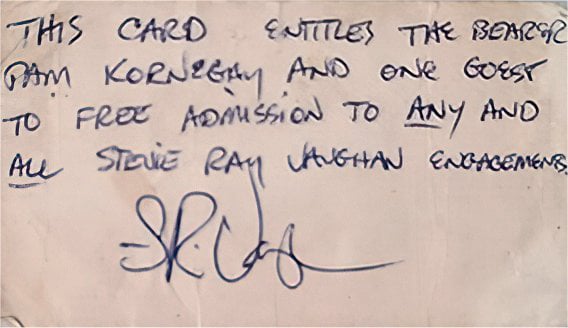 THIS CARD ENTITLES THE BEARER
PAM KORNEGAY AND ONE GUEST
TO FREE ADMISSION TO ANY AND
ALL STEVIE RAY VAUGHAN ENGAGEMENTS.
SRVaughan